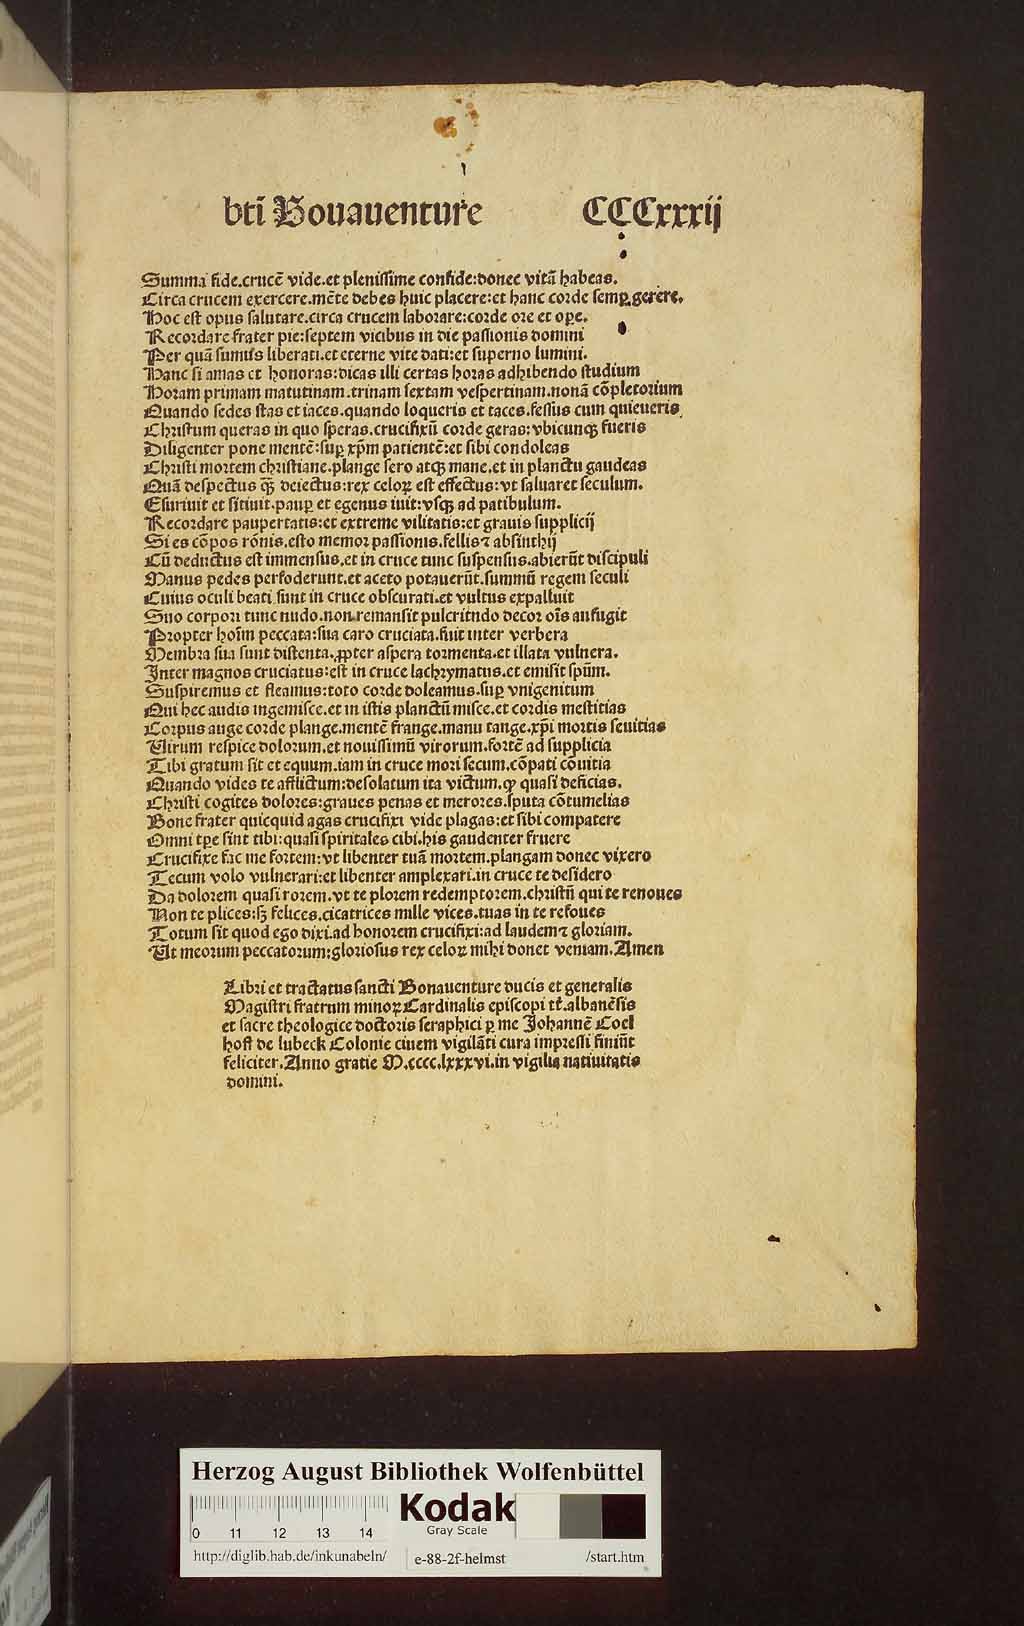 btī Bouauenture CCCxxxij
Summa fide.crucē vide.et plenissime confide:donec vitā habeas.
Circa crucem exercere.mēte debes huic placere:et hanc corde semꝑ gerere.
Hoc est opus salutare.circa crucem laborare:corde ore et oꝑe.
Recordare frater pie:septem vicibus in die passionis domini
Per quā sumus liberati.et eterne vite dati:et superno lumini.
Hanc si amas et honoras:dicas illi certas horas adhibendo studium
Horam primam matutinam.trinam sextam vespertinam.nonā cōpletorium
Quando sedes stas et iaces.quando loqueris et taces.fessus cum quieueris.
Christum queras in quo speras.crucifixū corde geras:vbicunqꝫ fueris
Diligenter pone mentē:suꝑ xp̄m patientē:et sibi condoleas
Christi mortem christiane.plange sero atqꝫ mane.et in planctu gaudeas
Quā despectus qꝫ̄ deiectus:rex celoꝝ est effectus:vt saluaret seculum.
Esuriuit et sitiuit.pauꝑ et egenus iuit:vsqꝫ ad patibulum.
Recordare paupertatis:et extreme vilitatis:et grauis supplicij
Si es cōpos rōnis.esto memor passionis.fellis⁊ absinthij
Cū deductus est immensus.et in cruce tunc suspensus.abierūt discipuli
Manus pedes perfoderunt.et aceto potauerūt.summū regem seculi
Cuius oculi beati sunt in cruce obscurati.et vultus expalluit
Suo corpori tunc nudo.non remansit pulcritudo decor oīs aufugit
Propter hoīm peccata:sua caro cruciata.fuit inter verbera
Membra sua sunt distenta.ꝓpter aspera tormenta.et illata vulnera.
Inter magnos cruciatus:est in cruce lachrymatus.et emisit spūm.
Suspiremus et fleamus:toto corde doleamus.suꝑ vnigenitum
Qui hec audis ingemisce.et in istis planctū misce.et cordis mestitias
Corpus auge corde plange.mentē frange.manu tange.xp̄i mortis seuitias
Uirum respice dolorum.et nouissimū virorum.fortē ad supplicia
Tibi gratum sit et equum.iam in cruce mori secum.cōpati cōuitia
Quando vides te afflictum:desolatum ita victum.ꝙ quasi deficias.
Christi cogites dolores:graues penas et merores.sputa cōtumelias
Bone frater quicquid agas crucifixi vide plagas:et sibi compatere
Omni tꝑe sint tibi:quasi spiritales cibi.his gaudenter fruere
Crucifixe fac me fortem:vt libenter tuā mortem.plangam donec vixero
Tecum volo vulnerari:et libenter amplexari.in cruce te desidero
Da dolorem quasi rorem.vt te plorem redemptorem.christū qui te renoues
Non te plices:sꝫ felices.cicatrices mille vices.tuas in te refoues
Totum sit quod ego dixi.ad honorem crucifixi:ad laudem⁊ gloriam.
Ut meorum peccatorum:gloriosus rex celoꝝ mihi donet veniam.Amen
Libri et tractatus sancti Bonauenture ducis et generalis
Magistri fratrum minoꝝ Cardinalis episcopi tt̄.albanēsis
et sacre theologice doctoris seraphici ꝑ me Johannē Coel
hoff de lubeck Colonie ciuem vigilāti cura impressi finiūt
feliciter.Anno gratie M.cccc.lxxxvi.in vigilia natiuitatis
domini.
Herzog August Bibliothek Wolfenbüttel
0 11 12 13 14
Kodak
Gray Scale
http://diglib.hab.de/inkunabeln/ e-88-2f-helmst /start.htm